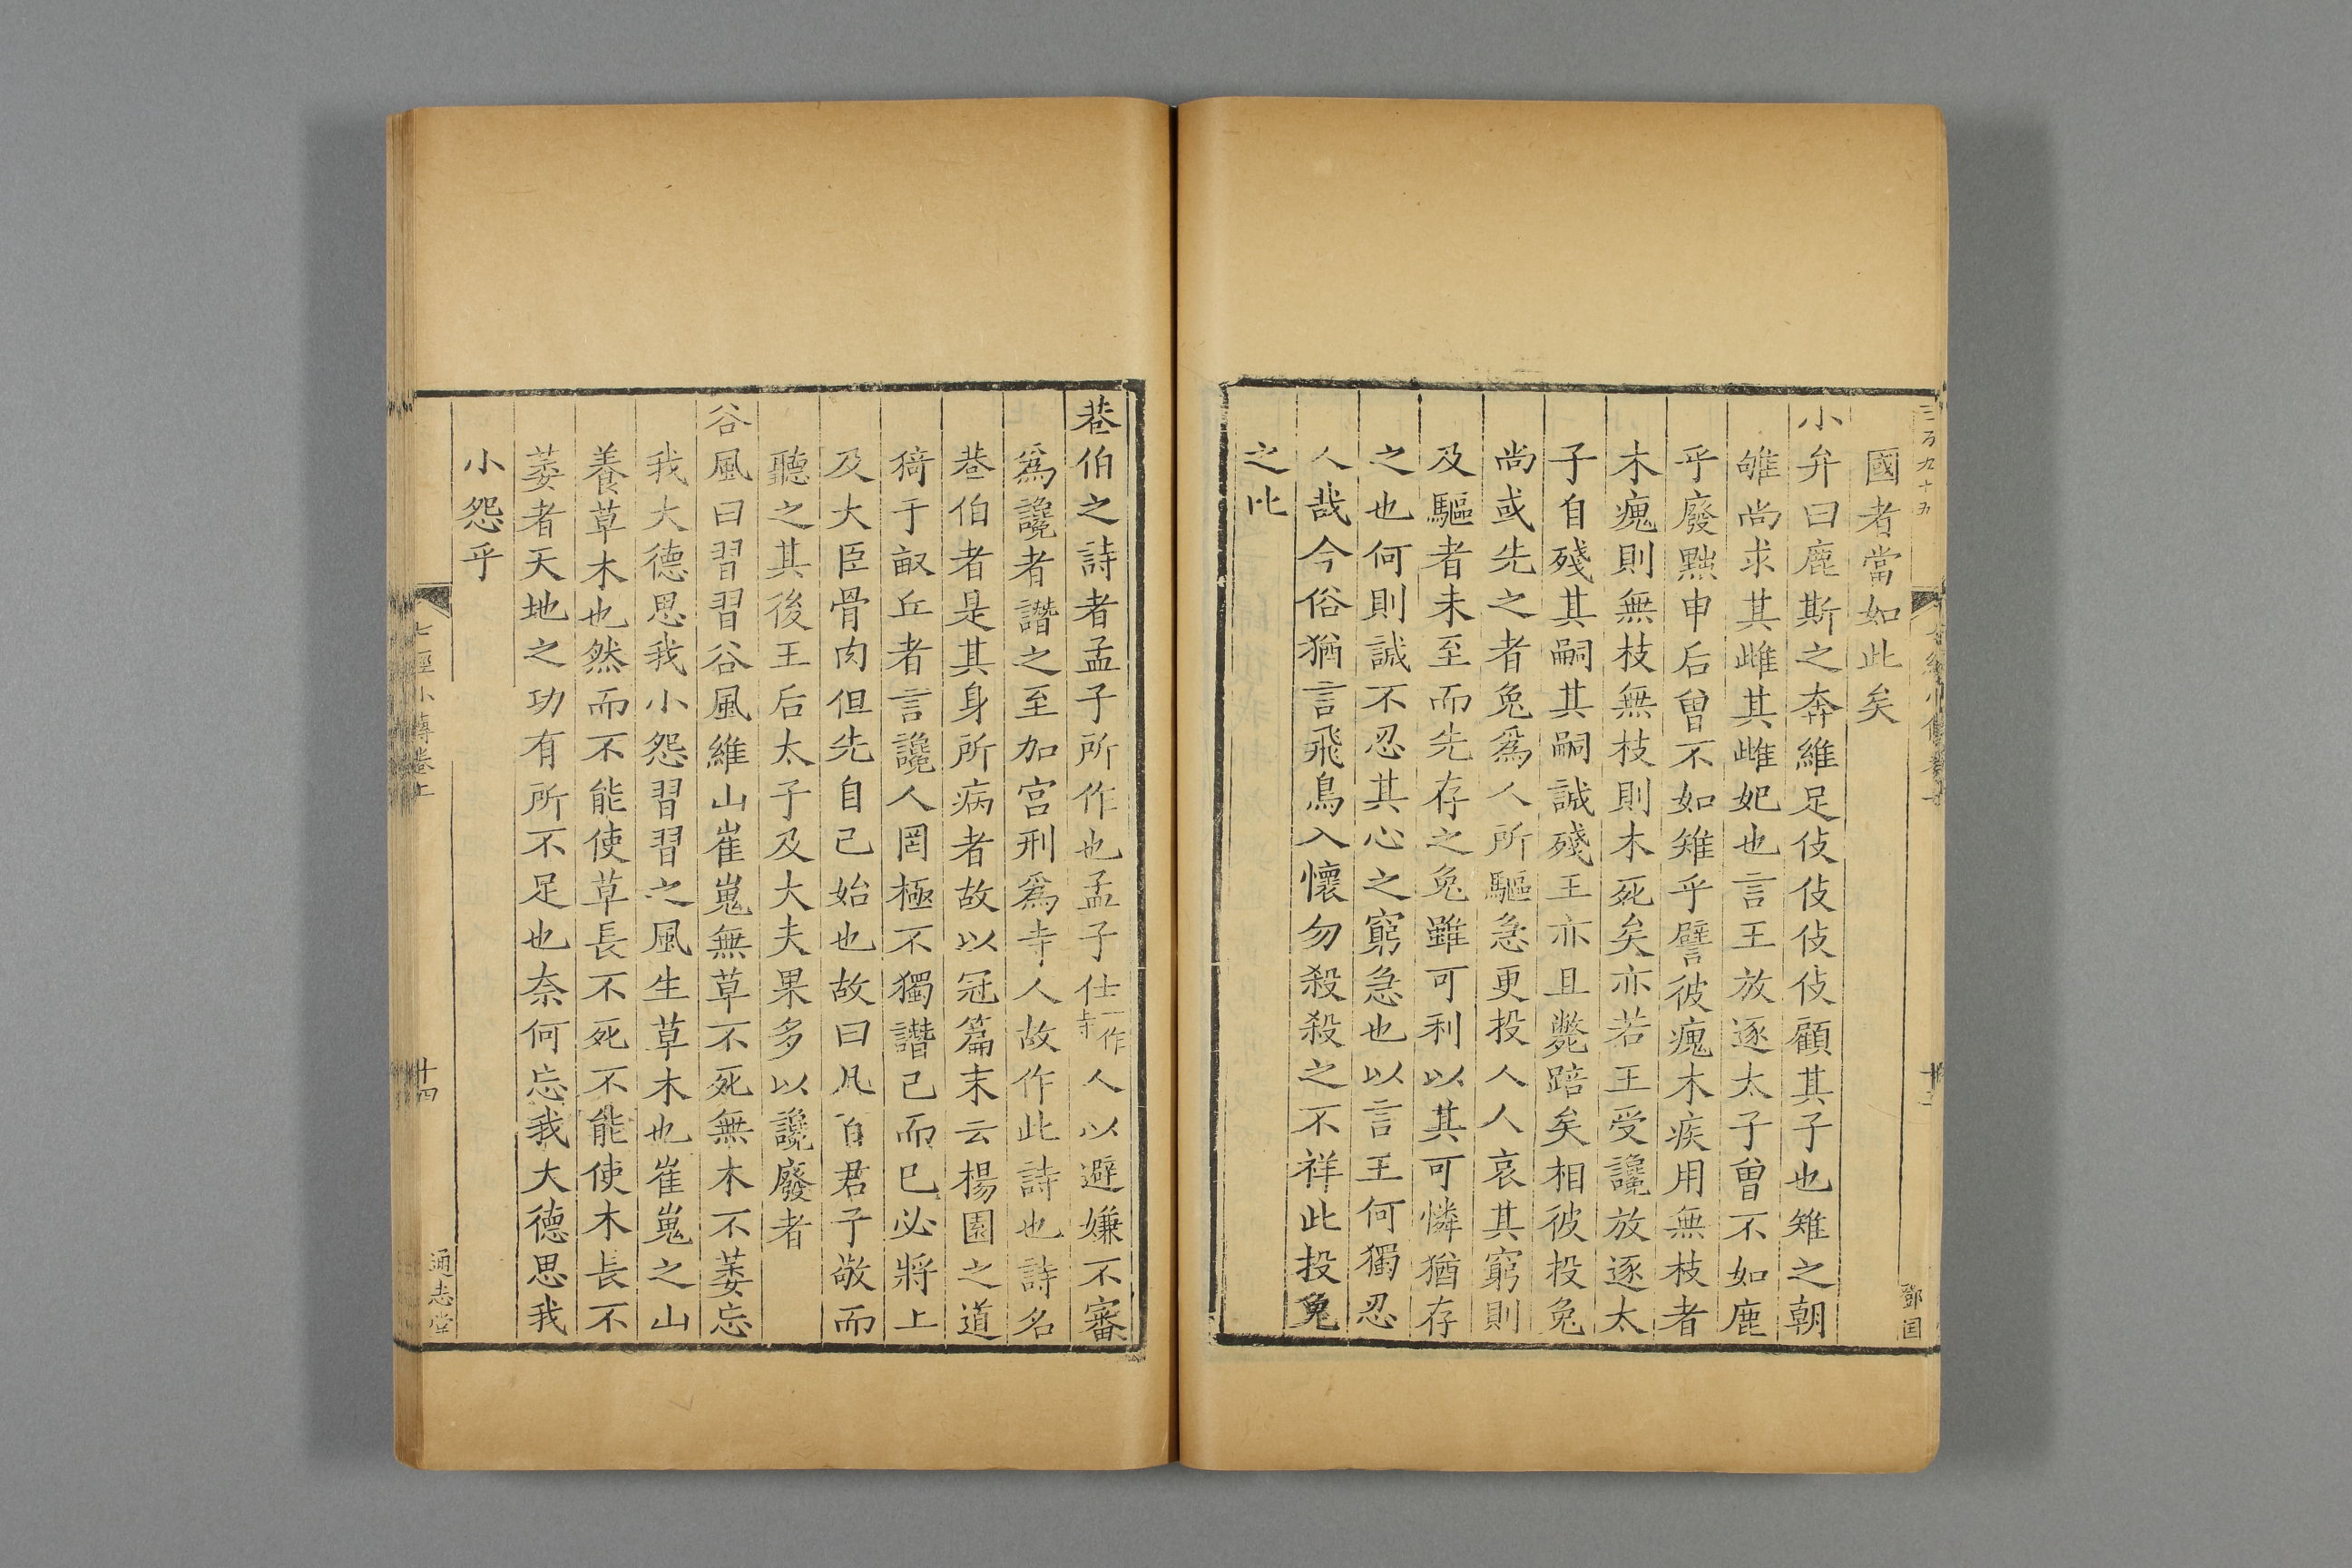 國者當如此矣
小弁曰鹿斯之奔維足伎伎伎伎顧其子也雉之朝
雊尚求其雌其雌妃也言王放逐太子曾不如鹿
乎廢黜申后曾不如雉乎譬彼瘣木疾用無枝者
木瘣則無枝無枝則木死矣亦若王受讒放逐太
子自殘其嗣其嗣誠殘王亦且斃踣矣相彼投兔
尚或先之者兔爲人所驅急更投人人哀其窮則
及驅者未至而先存之兔雖可利以其可憐猶存
之也何則誠不忍其心之窮急也以言王何獨忍
人哉今俗猶言飛鳥入懷勿殺殺之不祥此投兔
之比
鄧国
巷伯之詩者孟子所作也孟子仕一作寺人以避嫌不審
爲讒者譖之至加宮刑爲寺人故作此詩也詩名
巷伯者是其身所病者故以冠篇末云楊園之道
猗于畝丘者言讒人罔極不獨譖己而已必將上
及大臣骨肉但先自己始也故曰凡百君子敬而
聽之其後王后太子及大夫果多以讒廢者
谷風曰習習谷風維山崔嵬無草不死無木不萎忘
我大德思我小怨習習之風生草木也崔嵬之山
養草木也然而不能使草長不死不能使木長不
萎者天地之功有所不足也奈何忘我大德思我
小怨乎
七經小傳卷上
十四
通志堂